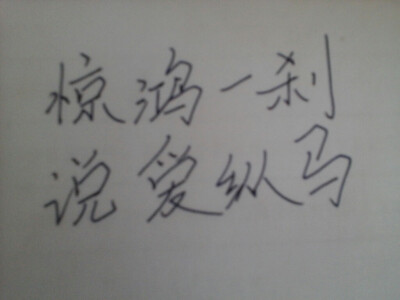 惊鸿一刹
说爱纵马